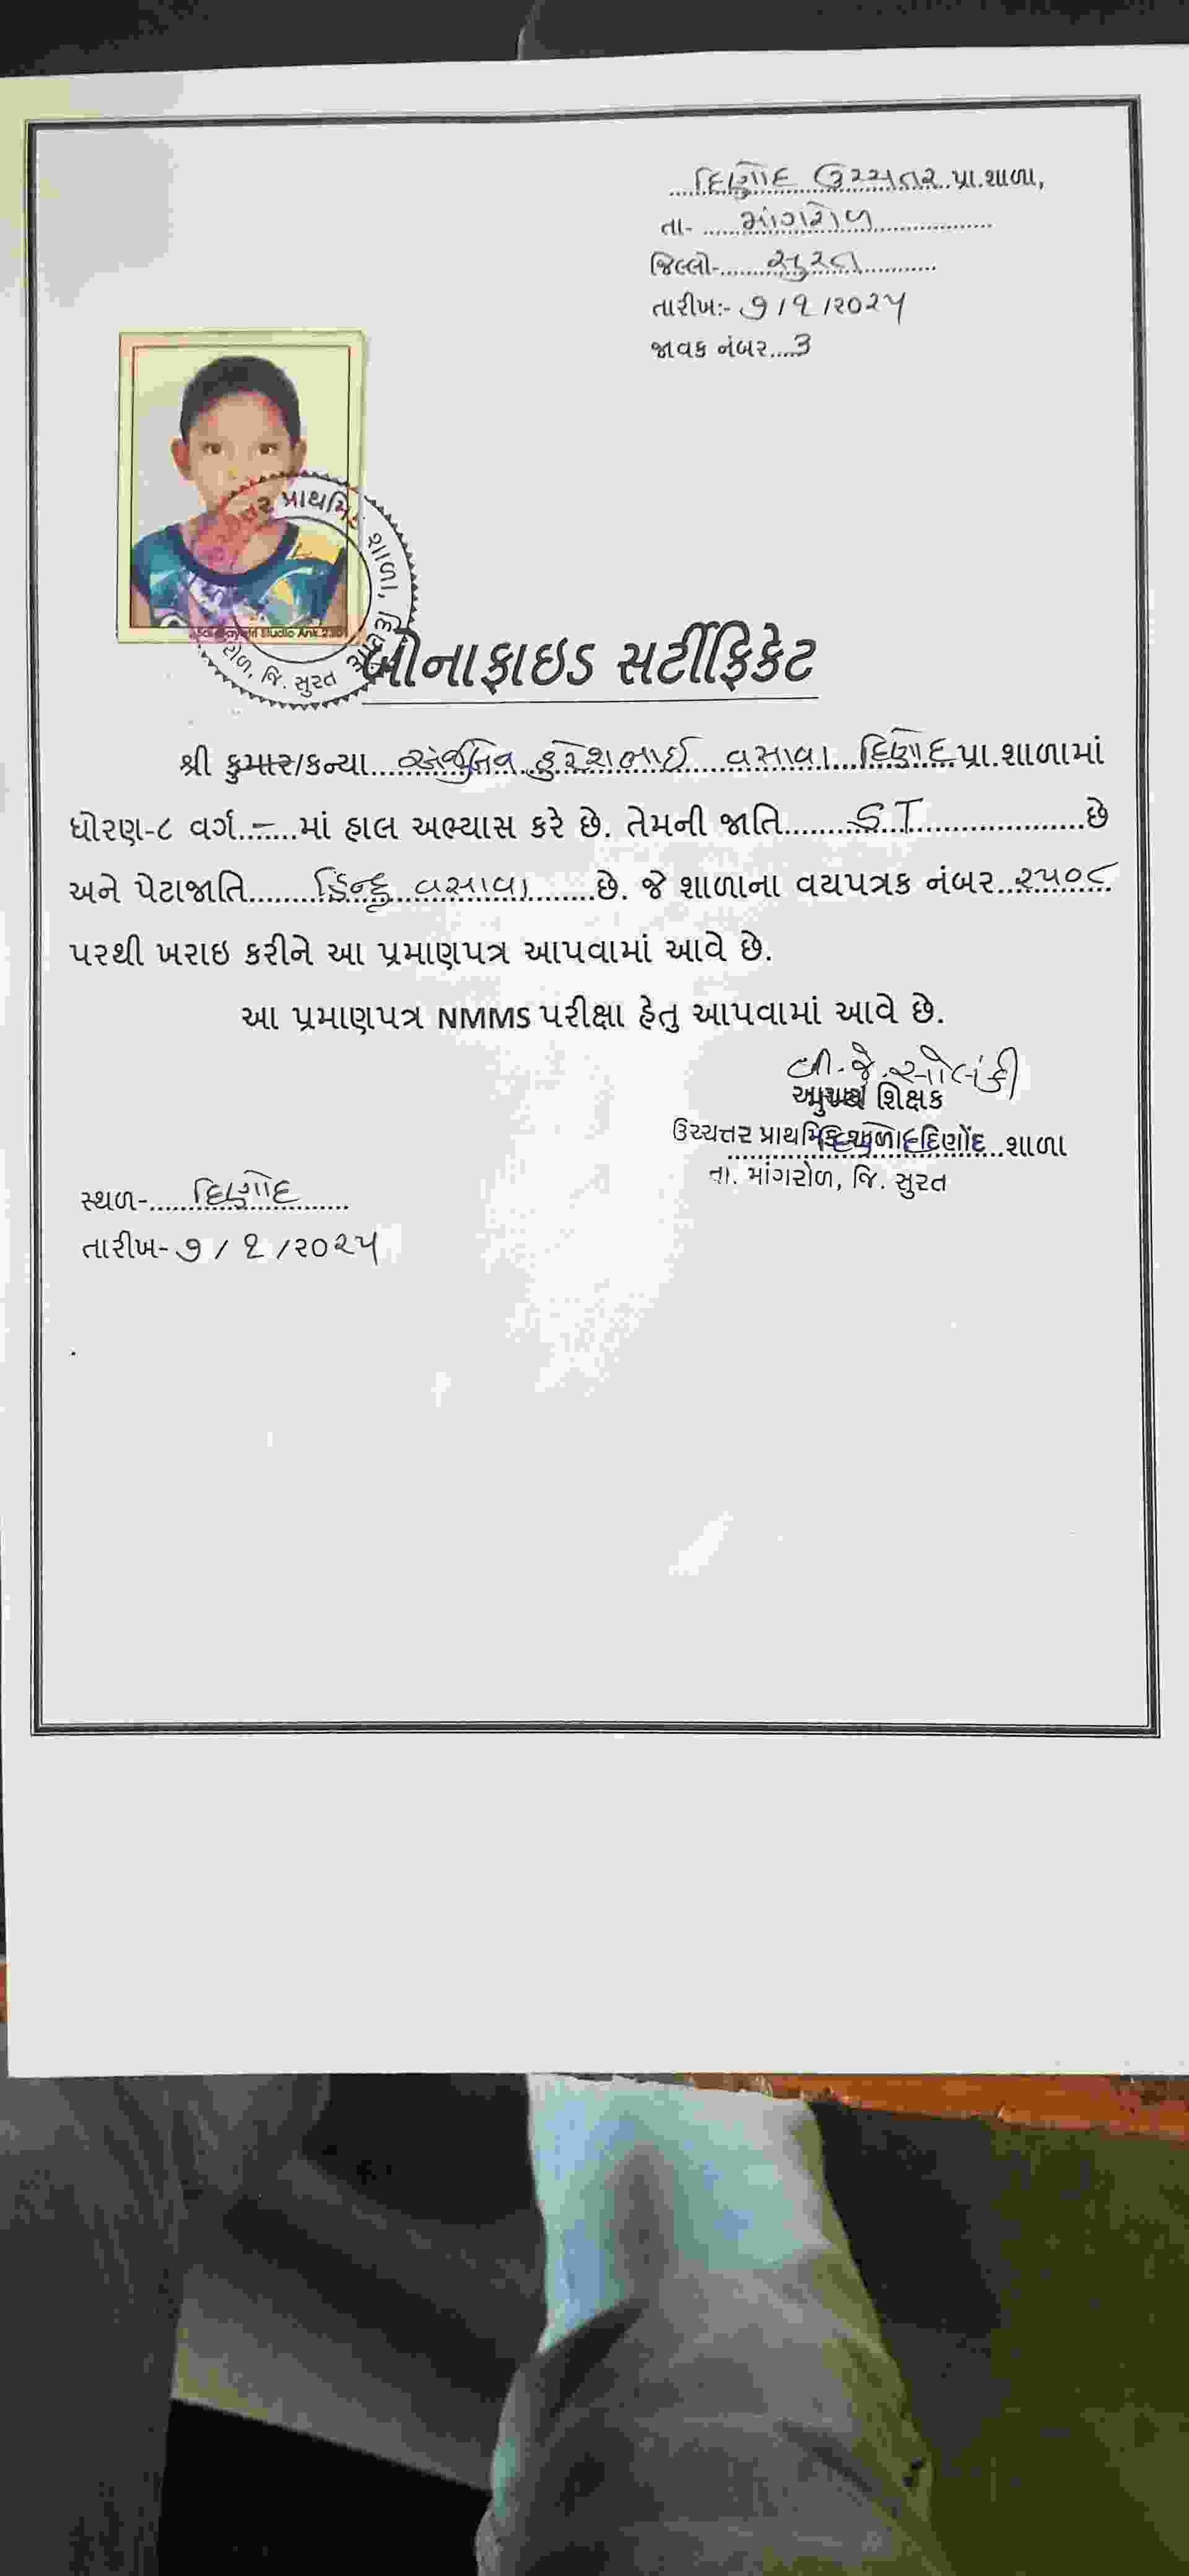 દિણોદ ઉચ્ચતર પ્રા.શાળા,
તા- માંગરોળ
જિલ્લો- સુરત
તારીખ:- ૭/૧/૨૦૨૫
જાવક નંબર....3
પ્રાથમિક શાળા, દિણોદ
જિ. સુરત
બોનાફાઇડ સર્ટીફિકેટ
શ્રી કુમાર/કન્યા વસાવા દિણોદ પ્રા.શાળામાં
ધોરણ-૮ વર્ગ - માં હાલ અભ્યાસ કરે છે. તેમની જાતિ ST છે
અને પેટાજાતિ હિન્દુ વસાવા છે. જે શાળાના વયપત્રક નંબર ૨૫૦૮
પરથી ખરાઇ કરીને આ પ્રમાણપત્ર આપવામાં આવે છે.
આ પ્રમાણપત્ર NMMS પરીક્ષા હેતુ આપવામાં આવે છે.
બી.જે.સોલંકી
શિક્ષક
ઉચ્ચત્તર પ્રાથમિક દિણોદ શાળા
તા. માંગરોળ, જિ. સુરત
સ્થળ- દિણોદ
તારીખ- ૭/૧/૨૦૨૫